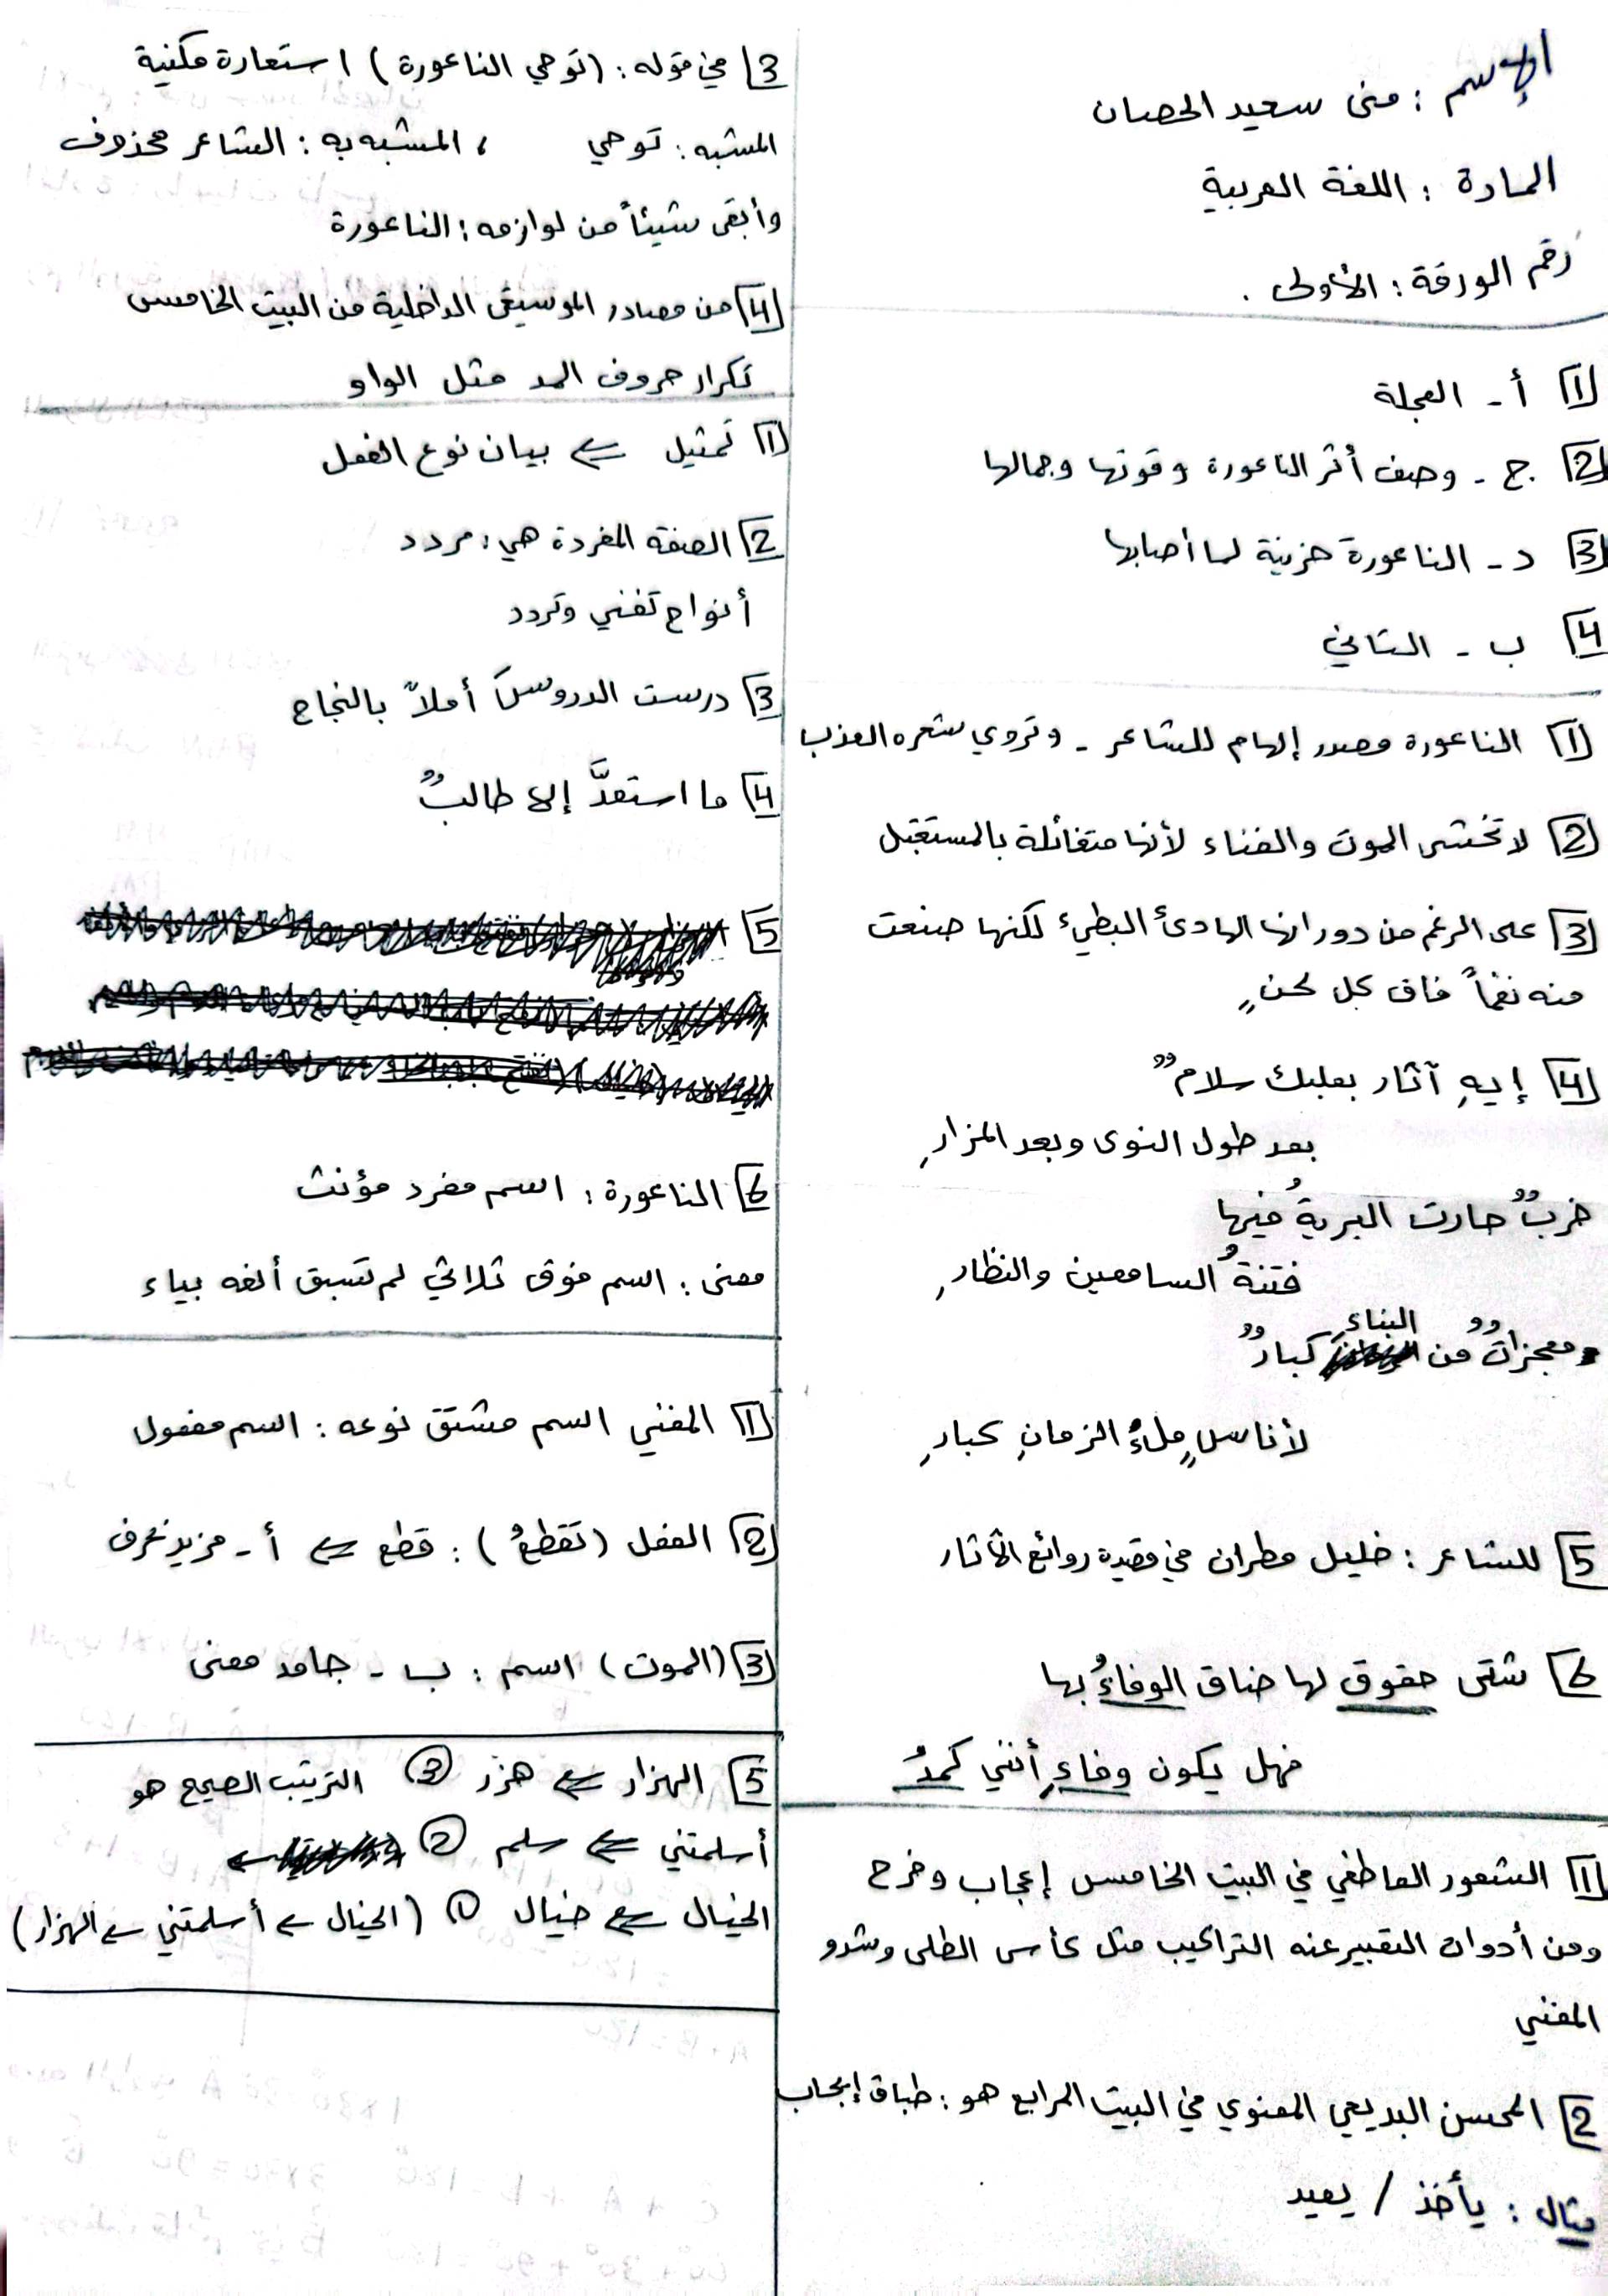 الإسم : منى سعيد الحصان
المادة : اللغة العربية
رقم الورقة : الأولى .
1 أ - العجلة
2 ج - وصف أثر الناعورة وقوتها وجمالها
3 د - الناعورة حزينة لما أصابها
4 ب - الثاني
1 الناعورة مصدر إلهام للشاعر - وتروي شعره العذب
2 لا تخشى الموت والفناء لأنها متفائلة بالمستقبل
3 على الرغم من دورانها الهادئ البطيء لكنها صنعت
منه نغماً فاق كل لحنٍ
4 إيهِ آثار بعلبك سلامٌ
بعد طول النوى وبعد المزارِ
خربٌ حارت البريةُ فيها
فتنةُ السامعين والنظارِ
معجزاتٌ من البناءِ كبارٌ
لأناسٍ ملءُ الزمانِ كبارِ
5 للشاعر : خليل مطران في قصيدة روائع الآثار
6 شتى حقوق لها ضاق الوفاءُ بها
فهل يكون وفاءٍ أنني كمدُ
1 الشعور العاطفي في البيت الخامس إعجاب وفرح
ومن أدوات التعبير عنه التراكيب مثل كأس الطلى وشدو
المغني
2 المحسن البديعي المعنوي في البيت الرابع هو : طباق إيجاب
مثال : يأخذ / يعيد
3 في قوله : (توحي الناعورة) استعارة مكنية
المشبه : توحي ، المشبه به : الشاعر محذوف
وأبقى شيئاً من لوازمه : الناعورة
4 من مصادر الموسيقى الداخلية من البيت الخامس
تكرار حروف المد مثل الواو
1 تمثيل ⇐ بيان نوع الفعل
2 الصفة المفردة هي : مردد
أنواح تغني وتردد
3 درست الدروسَ أملاً بالنجاح
4 ما استعدَّ إلا طالبٌ
5
6 الناعورة : اسم مفرد مؤنث
معنى : اسم فوق ثلاثي لم تسبق ألفه بياء
1 المغني اسم مشتق نوعه : اسم مفعول
2 الفعل (تقطعُ) : قطع ⇐ أ - مزيد بحرف
3 (الموت) اسم : ب - جامد معنى
5 الهزار ⇐ هزر 3 الترتيب الصحيح هو
أسلمتني ⇐ سلم 2 ←
الخيال ⇐ خيال 1 (الخيال ← أسلمتني ← الهزار)